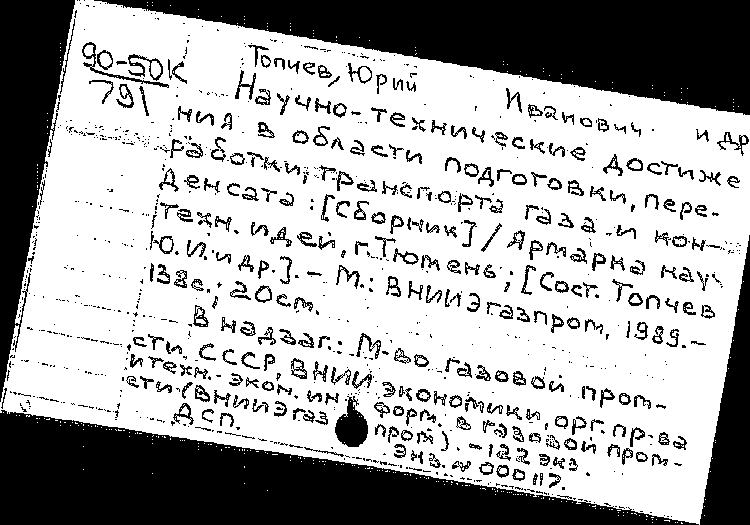 90-50К
791
Топчев, Юрий Иванович и др
Научно-технические достиже
ния в области подготовки, пере-
работки, транспорта газа и кон-
денсата : [Сборник] / Ярмарка науч
техн. идей, г. Тюмень ; [Сост. Топчев
Ю. И. и др.]. - М.: ВНИИЭгазпром, 1989. -
138с.; 20см.
В надзаг.: М-во газовой пром-
сти СССР, ВНИИ экономики, орг. пр-ва
и техн.-экон. информ. в газовой пром-
сти (ВНИИЭгазпром). - 122 экз.
Дсп. Экз. № 000117.